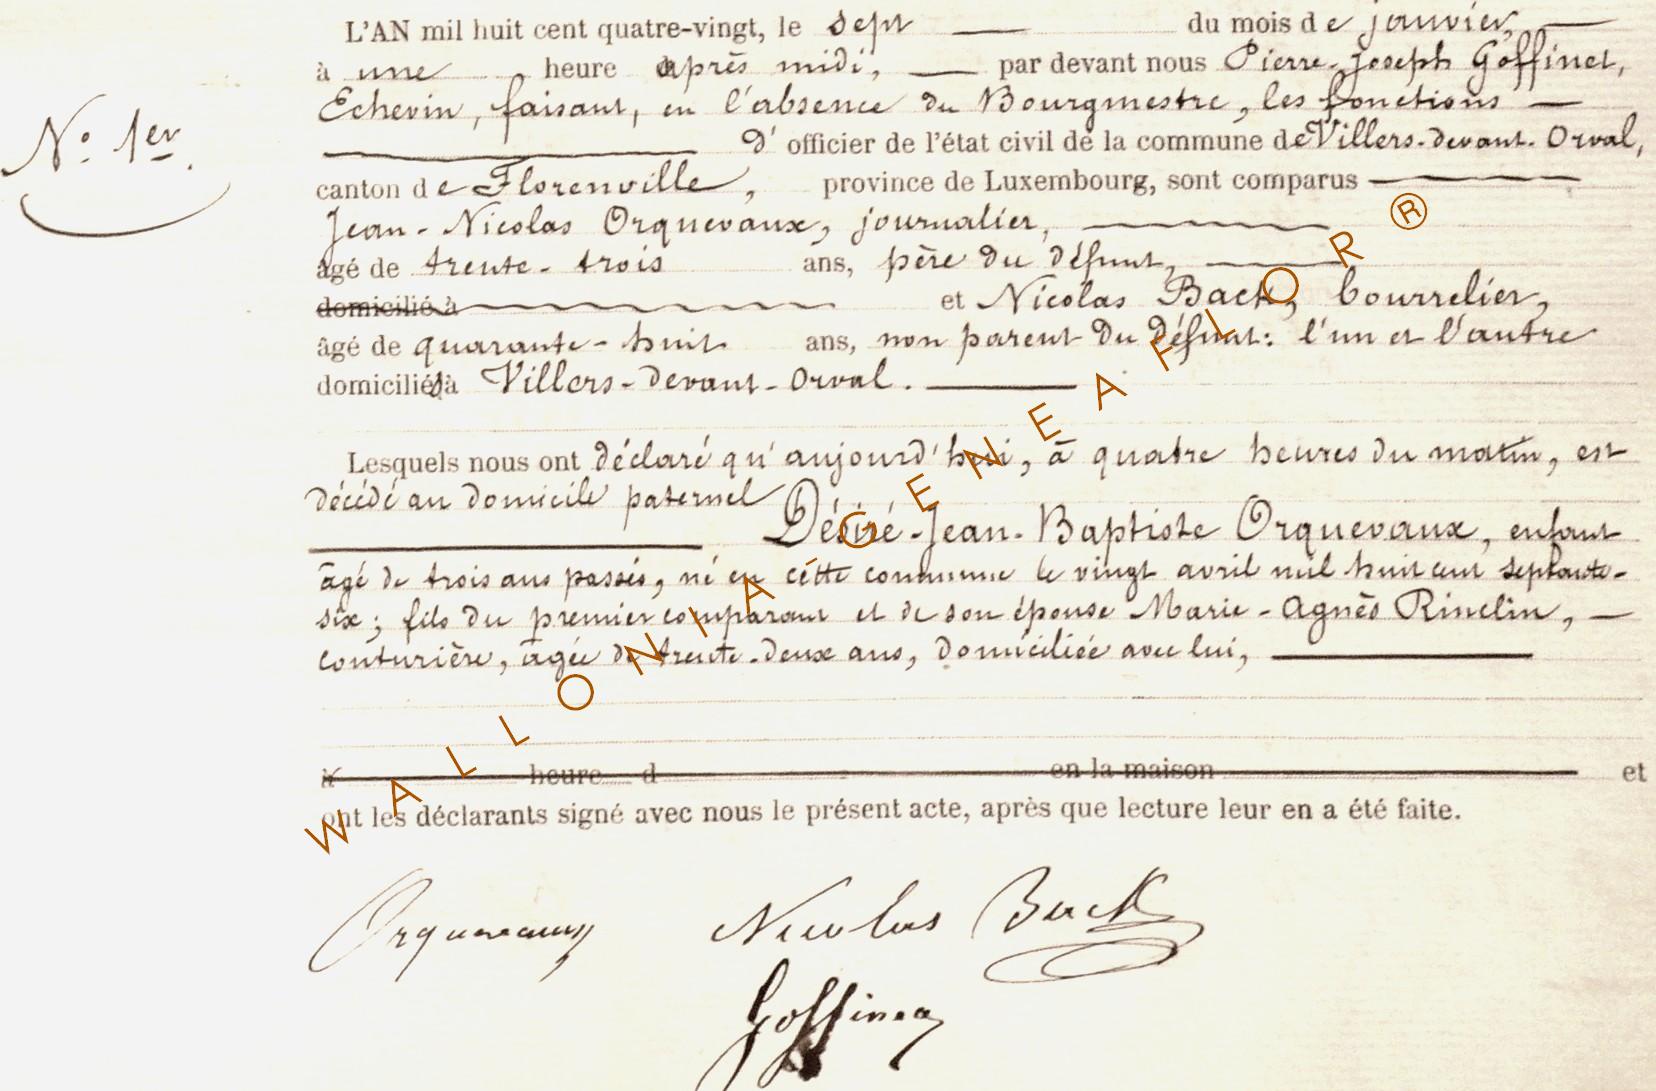 L'AN mil huit cent quatre-vingt, le sept du mois de janvier,
à une heure après midi, par devant nous Pierre-Joseph Goffinet,
Echevin, faisant, en l'absence du Bourgmestre, les fonctions
N° 1er.
d'officier de l'état civil de la commune de Villers-devant-Orval,
canton de Florenville, province de Luxembourg, sont comparus
Jean-Nicolas Orquevaux, journalier,
âgé de trente-trois ans, père du défunt,
domicilié à et Nicolas Back, bourrelier,
âgé de quarante-huit ans, non parent du défunt: l'un et l'autre
domiciliés à Villers-devant-Orval.
Lesquels nous ont déclaré qu'aujourd'hui, à quatre heures du matin, est
décédé au domicile paternel
Désiré-Jean-Baptiste Orquevaux, enfant
âgé de trois ans passés, né en cette commune le vingt avril mil huit cent septante-
six; fils du premier comparant et de son épouse Marie-Agnès Rinclin,
couturière, âgée de trente-deux ans, domiciliée avec lui,
à heure d en la maison et
ont les déclarants signé avec nous le présent acte, après que lecture leur en a été faite.
Orquevaux Nicolas Back
Goffinet
WALLONIA-GENEAFLOR®